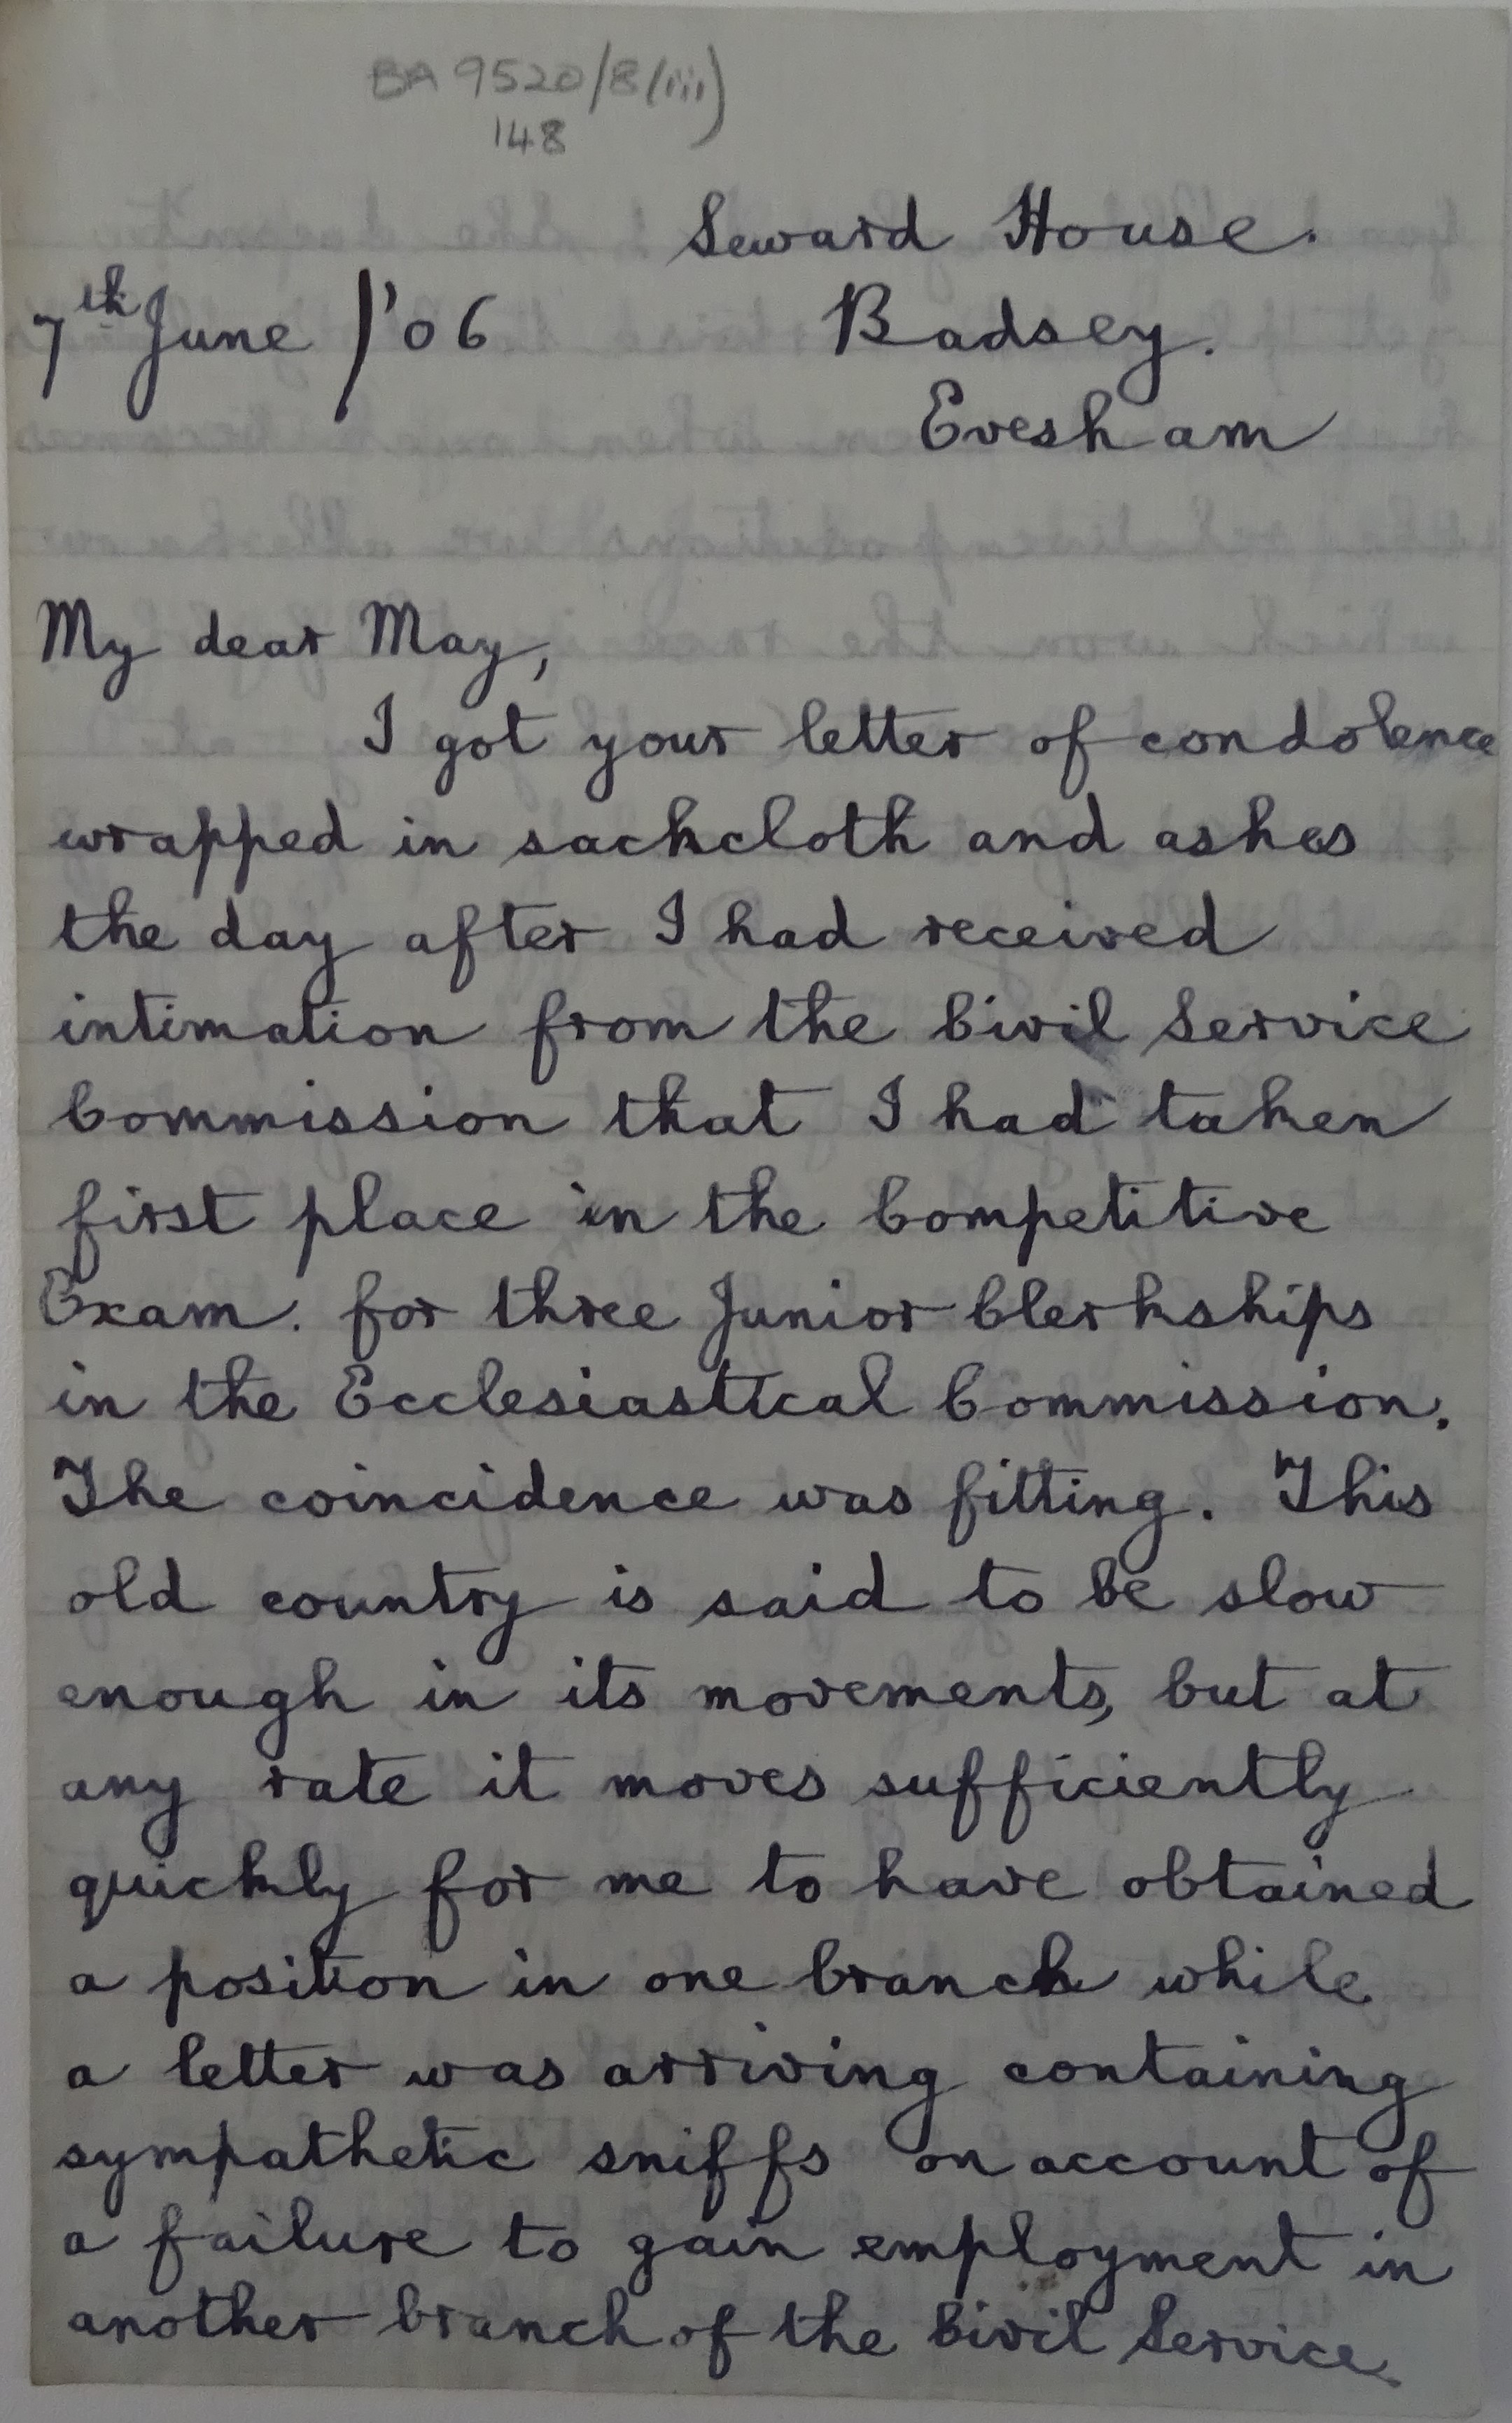 BA 9520/8(iii)
148
Seward House.
7th June /'06
Badsey.
Evesham
My dear May,
I got your letter of condolence
wrapped in sackcloth and ashes
the day after I had received
intimation from the Civil Service
Commission that I had taken
first place in the Competitive
Exam. for three Junior Clerkships
in the Ecclesiastical Commission.
The coincidence was fitting. This
old country is said to be slow
enough in its movements, but at
any rate it moves sufficiently
quickly for me to have obtained
a position in one branch while
a letter was arriving containing
sympathetic sniffs on account of
a failure to gain employment in
another branch of the Civil Service